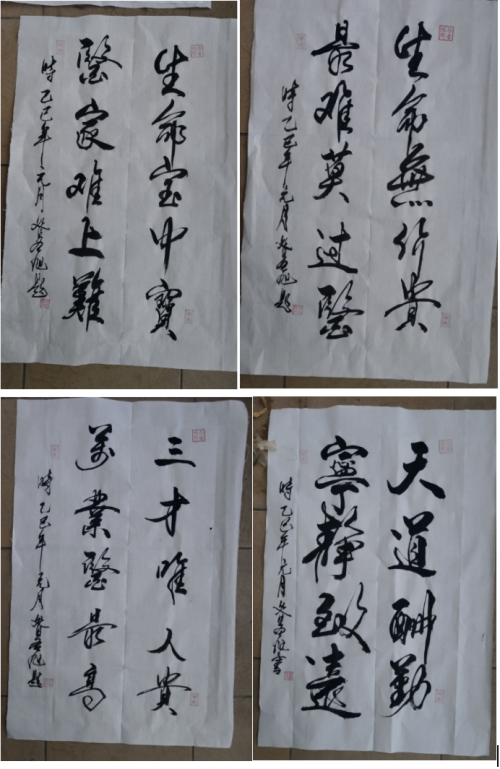 生命宝中寶
醫家难上難
時乙巳年元月題
生命無价貴
最难莫过醫
時乙巳年元月題
三才唯人貴
萬業醫最高
時乙巳年元月題
天道酬勤
寧靜致遠
時乙巳年元月書